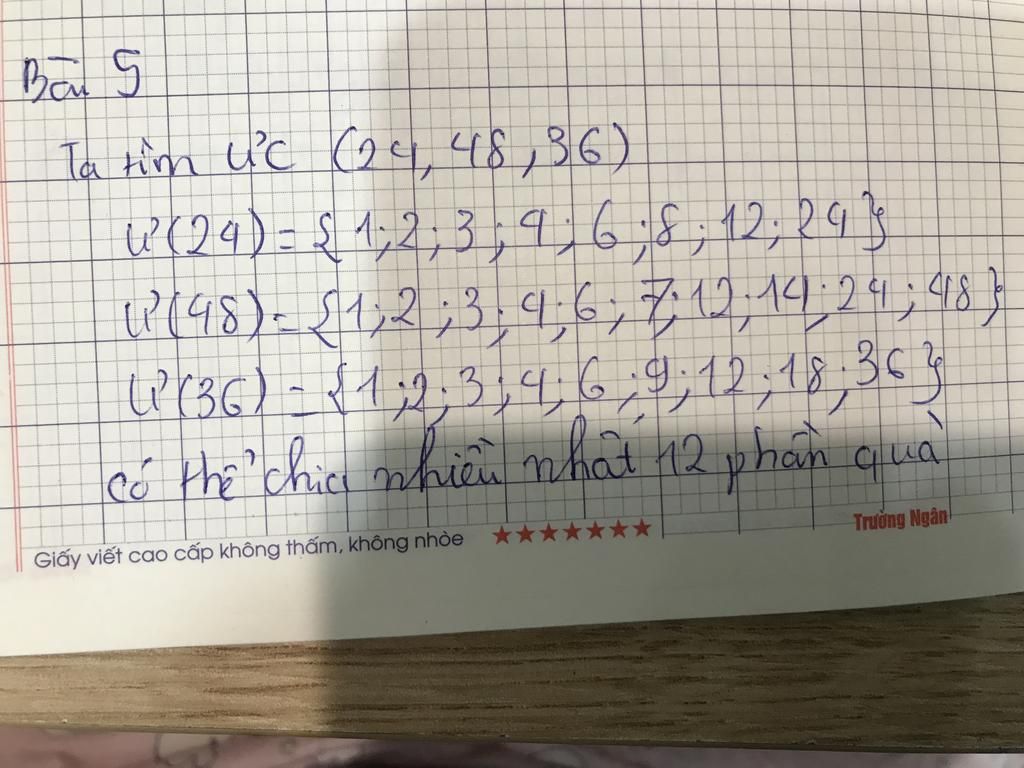 Bài 5
Ta tìm ƯC (24, 48, 36)
Ư(24) = {1; 2; 3; 4; 6; 8; 12; 24}
Ư(48) = {1; 2; 3; 4; 6; 7; 12; 14; 24; 48}
Ư(36) = {1; 2; 3; 4; 6; 9; 12; 18; 36}
có thể chia nhiều nhất 12 phần quà
Trường Ngân
Giấy viết cao cấp không thấm, không nhòe ★★★★★★★